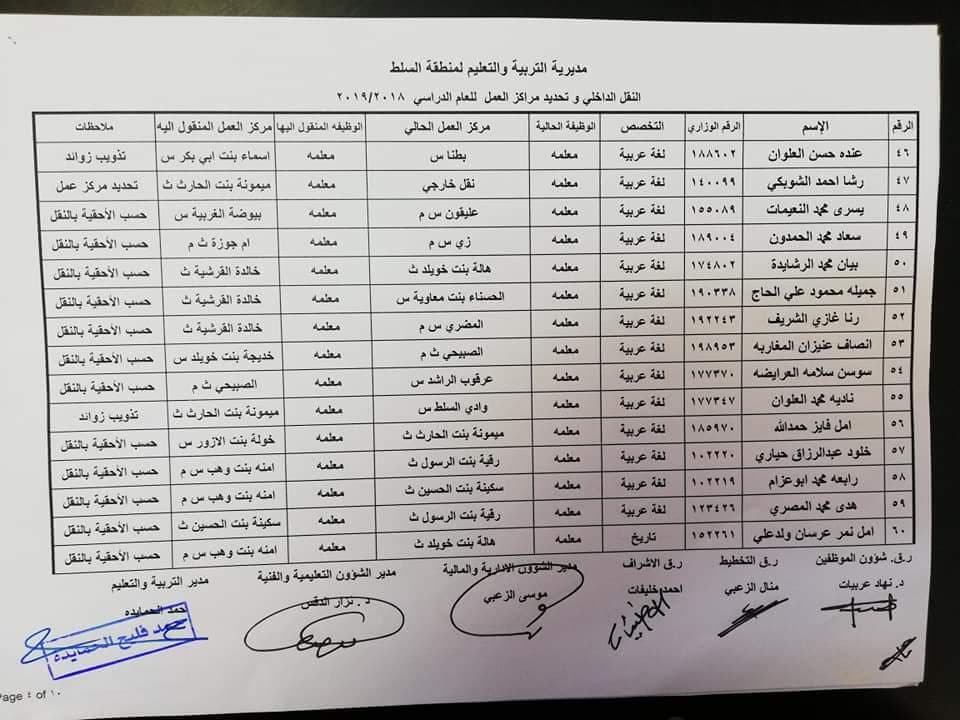 مديرية التربية والتعليم لمنطقة السلط
النقل الداخلي و تحديد مراكز العمل للعام الدراسي ٢٠١٩/٢٠١٨
الرقم الإسم الرقم الوزاري التخصص الوظيفة الحالية مركز العمل الحالي الوظيفه المنقول اليها مركز العمل المنقول اليه ملاحظات
٤٦ عنده حسن العلوان ١٨٨٦٠٢ لغة عربية معلمه بطنا س معلمه اسماء بنت ابي بكر س تذويب زوائد
٤٧ رشا احمد الشوبكي ١٤٠٠٩٩ لغة عربية معلمه نقل خارجي معلمه ميمونة بنت الحارث ث تحديد مركز عمل
٤٨ يسرى محمد النعيمات ١٥٥٠٨٩ لغة عربية معلمه عليقون س م معلمه بيوضة الغربية س حسب الأحقية بالنقل
٤٩ سعاد محمد الحمدون ١٨٩٠٠٤ لغة عربية معلمه زي س م معلمه ام جوزة ث م حسب الأحقية بالنقل
٥٠ بيان محمد الرشايدة ١٧٤٨٠٢ لغة عربية معلمه هالة بنت خويلد ث معلمه خالدة القرشية ث حسب الأحقية بالنقل
٥١ جميله محمود علي الحاج ١٩٠٣٣٨ لغة عربية معلمه الحسناء بنت معاوية س معلمه خالدة القرشية ث حسب الأحقية بالنقل
٥٢ رنا غازي الشريف ١٩٢٢٤٣ لغة عربية معلمه المضري س م معلمه خالدة القرشية ث حسب الأحقية بالنقل
٥٣ انصاف عنيزان المغاربه ١٩٨٩٥٣ لغة عربية معلمه الصبيحي ث م معلمه خديجة بنت خويلد س حسب الأحقية بالنقل
٥٤ سوسن سلامه العرايضه ١٧٧٣٧٠ لغة عربية معلمه عرقوب الراشد س معلمه الصبيحي ث م حسب الأحقية بالنقل
٥٥ ناديه محمد العلوان ١٧٧٣٤٧ لغة عربية معلمه وادي السلط س معلمه ميمونة بنت الحارث ث تذويب زوائد
٥٦ امل فايز حمدالله ١٨٥٩٧٠ لغة عربية معلمه ميمونة بنت الحارث ث معلمه خولة بنت الازور س حسب الأحقية بالنقل
٥٧ خلود عبدالرزاق حياري ١٠٢٢٢٠ لغة عربية معلمه رقية بنت الرسول ث معلمه امنه بنت وهب س م حسب الأحقية بالنقل
٥٨ رابعه محمد ابوعزام ١٠٢٢١٩ لغة عربية معلمه سكينة بنت الحسين ث معلمه امنه بنت وهب س م حسب الأحقية بالنقل
٥٩ هدى محمد المصري ١٢٣٤٢٦ لغة عربية معلمه رقية بنت الرسول ث معلمه سكينة بنت الحسين ث حسب الأحقية بالنقل
٦٠ امل نمر عرسان ولدعلي ١٥٢٢٦١ تاريخ معلمه هالة بنت خويلد ث معلمه امنه بنت وهب س م حسب الأحقية بالنقل
ر.ق. شؤون الموظفين ر.ق التخطيط ر.ق الاشراف مدير الشؤون الادارية والمالية مدير الشؤون التعليمية والفنية مدير التربية والتعليم
د. نهاد عربيات منال الزعبي احمد خليفات موسى الزعبي د . نزار الدقس حمد الحمايده
حمد فليح الحمايده
Page ٤ of ١٠